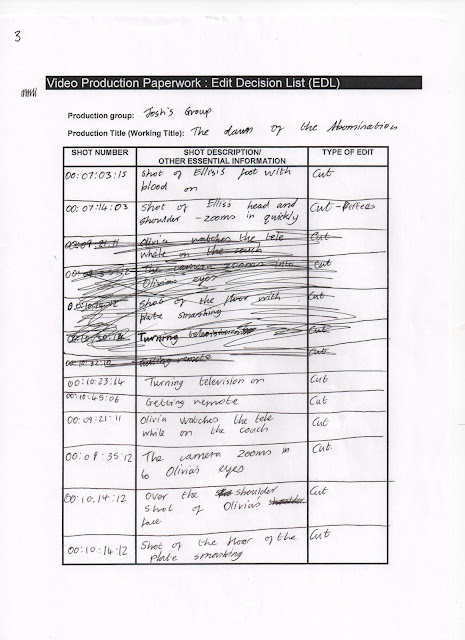 3
Video Production Paperwork : Edit Decision List (EDL)
Production group: Josh's Group
Production Title (Working Title): The dawn of the Abomination
SHOT NUMBER SHOT DESCRIPTION/ TYPE OF EDIT
OTHER ESSENTIAL INFORMATION
00:07:03:15 Shot of Ellis's foot with Cut
blood on
00:07:14:03 Shot of Ellis's head and Cut -
shoulder - zooms in quickly
00:09:21:11 Olivia watches the tele Cut
while on the couch
The camera zooms into Cut
Olivias eyes
Shot of the floor with Cut
plate smashing
Turning television Cut
Getting remote Cut
00:10:23:14 Turning television on Cut
00:10:45:06 Getting remote Cut
00:09:21:11 Olivia watches the tele Cut
while on the couch
00:09:35:12 The camera zooms in Cut
to Olivia's eyes
00:10:14:12 Over the shoulder Cut
shot of Olivia's shoulder
face
00:10:14:12 Shot of the floor of the Cut
plate smashing